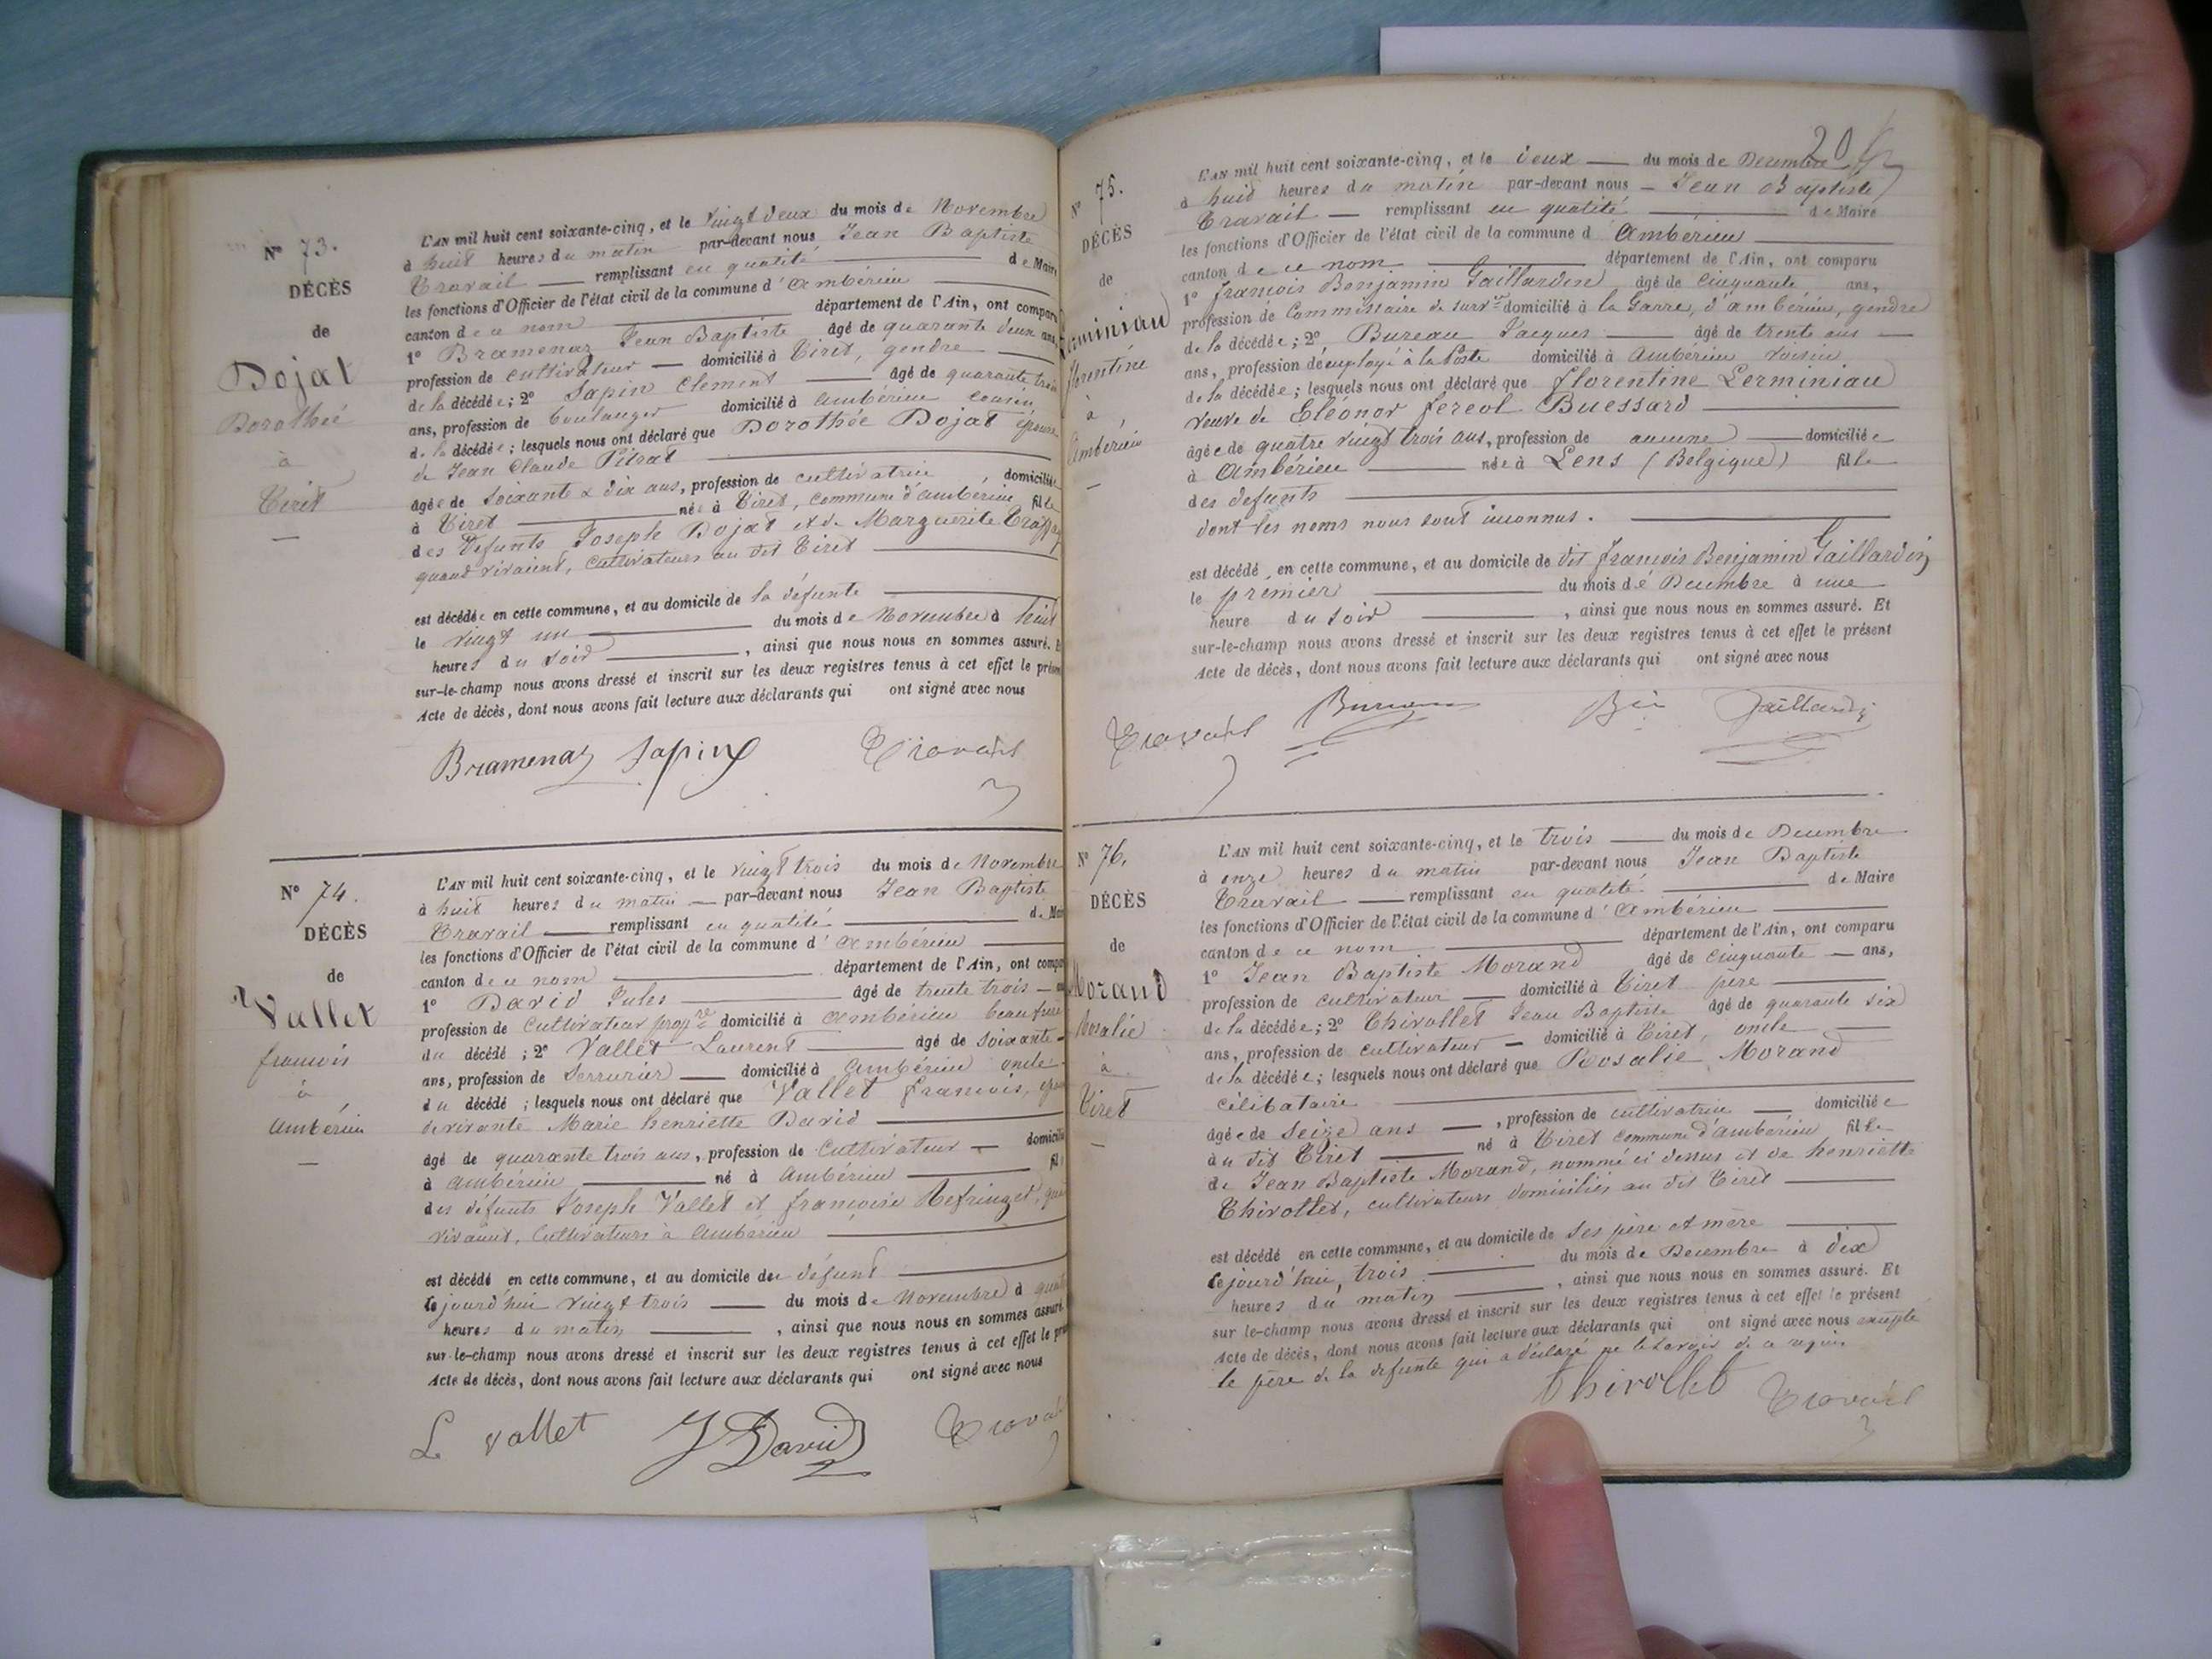 N° 73.
DÉCÈS
de
Dojat
Dorothée
à
Tiret
L'AN mil huit cent soixante-cinq, et le vingt deux du mois de Novembre
à huit heures du matin par-devant nous Jean Baptiste
Travail remplissant en qualité de Maire
les fonctions d'Officier de l'état civil de la commune d'Ambérieu
canton de ce nom département de l'Ain, ont comparu
1° Bramenaz Jean Baptiste âgé de quarante deux ans
profession de cultivateur domicilié à Tiret, gendre
de la décédée; 2° Sapin Clement âgé de quarante trois
ans, profession de boulanger domicilié à Ambérieu cousin
de la décédée; lesquels nous ont déclaré que Dorothée Dojat épouse
de Jean Claude Pitrat
âgée de soixante & dix ans, profession de cultivatrice domiciliée
à Tiret née à Tiret, commune d'ambérieu fille
des défunts Joseph Dojat et de Marguerite
quand vivaient, cultivateurs au dit Tiret
est décédée en cette commune, et au domicile de la défunte
le vingt un du mois de Novembre à huit
heures du soir, ainsi que nous nous en sommes assuré. Et
sur-le-champ nous avons dressé et inscrit sur les deux registres tenus à cet effet le présent
Acte de décès, dont nous avons fait lecture aux déclarants qui ont signé avec nous
Bramenaz Sapin Travail
N° 74.
DÉCÈS
de
Vallet
francois
à
Ambérieu
L'AN mil huit cent soixante-cinq, et le vingt trois du mois de Novembre
à huit heures du matin par-devant nous Jean Baptiste
Travail remplissant en qualité de Mai
les fonctions d'Officier de l'état civil de la commune d'Ambérieu
canton de ce nom département de l'Ain, ont compa
1° David Jules âgé de trente trois
profession de Cultivateur prop.re domicilié à Ambérieu beau frère
du décédé; 2° Vallet Laurent âgé de soixante
ans, profession de Serrurier domicilié à Ambérieu oncle
du décédé; lesquels nous ont déclaré que Vallet francois,
de vivante Marie henriette David
âgé de quarante trois ans, profession de Cultivateur domicilié
à Ambérieu né à Ambérieu fil
des défunts Joseph Vallet et françoise
vivaient, Cultivateurs à Ambérieu
est décédé en cette commune, et au domicile du défunt
cejourd'hui vingt trois du mois de Novembre à
heures du matin, ainsi que nous nous en sommes assuré.
sur-le-champ nous avons dressé et inscrit sur les deux registres tenus à cet effet le pré
Acte de décès, dont nous avons fait lecture aux déclarants qui ont signé avec nous
L Vallet J David Travail
20
N° 75.
DÉCÈS
de
Lerminiau
florentine
à
Ambérieu
L'AN mil huit cent soixante-cinq, et le deux du mois de Decembre
à huit heures du matin par-devant nous Jean Baptiste
Travail remplissant en qualité de Maire
les fonctions d'Officier de l'état civil de la commune d Ambérieu
canton de ce nom département de l'Ain, ont comparu
1° francois Benjamin Gaillardin âgé de Cinquante ans,
profession de Commissaire de surv.ce domicilié à la Garre, d'ambérieu, gendre
de la décédée; 2° Bureau Jacques âgé de trente ans
ans, profession d'employé à la Poste domicilié à Ambérieu voisin
de la décédée; lesquels nous ont déclaré que florentine Lerminiau
veuve de Eléonor fereol Buessard
âgée de quatre vingt trois ans, profession de aucune domiciliée
à Ambérieu née à Lens (Belgique) fille
des defunts
dont les noms nous sont inconnus.
est décédé en cette commune, et au domicile de dit francois Benjamin Gaillardin
le premier du mois de Decembre à une
heure du soir, ainsi que nous nous en sommes assuré. Et
sur-le-champ nous avons dressé et inscrit sur les deux registres tenus à cet effet le présent
Acte de décès, dont nous avons fait lecture aux déclarants qui ont signé avec nous
Travail Bureau Bin Gaillardin
N° 76.
DÉCÈS
de
Morand
Rosalie
à
Tiret
L'AN mil huit cent soixante-cinq, et le trois du mois de Decembre
à onze heures du matin par-devant nous Jean Baptiste
Travail remplissant en qualité de Maire
les fonctions d'Officier de l'état civil de la commune d'Ambérieu
canton de ce nom département de l'Ain, ont comparu
1° Jean Baptiste Morand âgé de Cinquante ans,
profession de cultivateur domicilié à Tiret père
de la décédée; 2° Thirollet Jean Baptiste âgé de quarante six
ans, profession de cultivateur domicilié à Tiret, oncle
de la décédée; lesquels nous ont déclaré que Rosalie Morand
célibataire
âgée de seize ans, profession de cultivatrice domiciliée
au dit Tiret né à Tiret commune d'ambérieu fille
de Jean Baptiste Morand, nommé ci dessus et de henriette
Thirollet, cultivateurs domiciliés au dit Tiret
est décédé en cette commune, et au domicile de ses père et mère
cejourd'hui trois du mois de Decembre à dix
heures du matin, ainsi que nous nous en sommes assuré. Et
sur le-champ nous avons dressé et inscrit sur les deux registres tenus à cet effet le présent
Acte de décès, dont nous avons fait lecture aux déclarants qui ont signé avec nous excepté
le père de la defunte qui a déclaré ne le savoir de ce requis.
Thirollet Travail